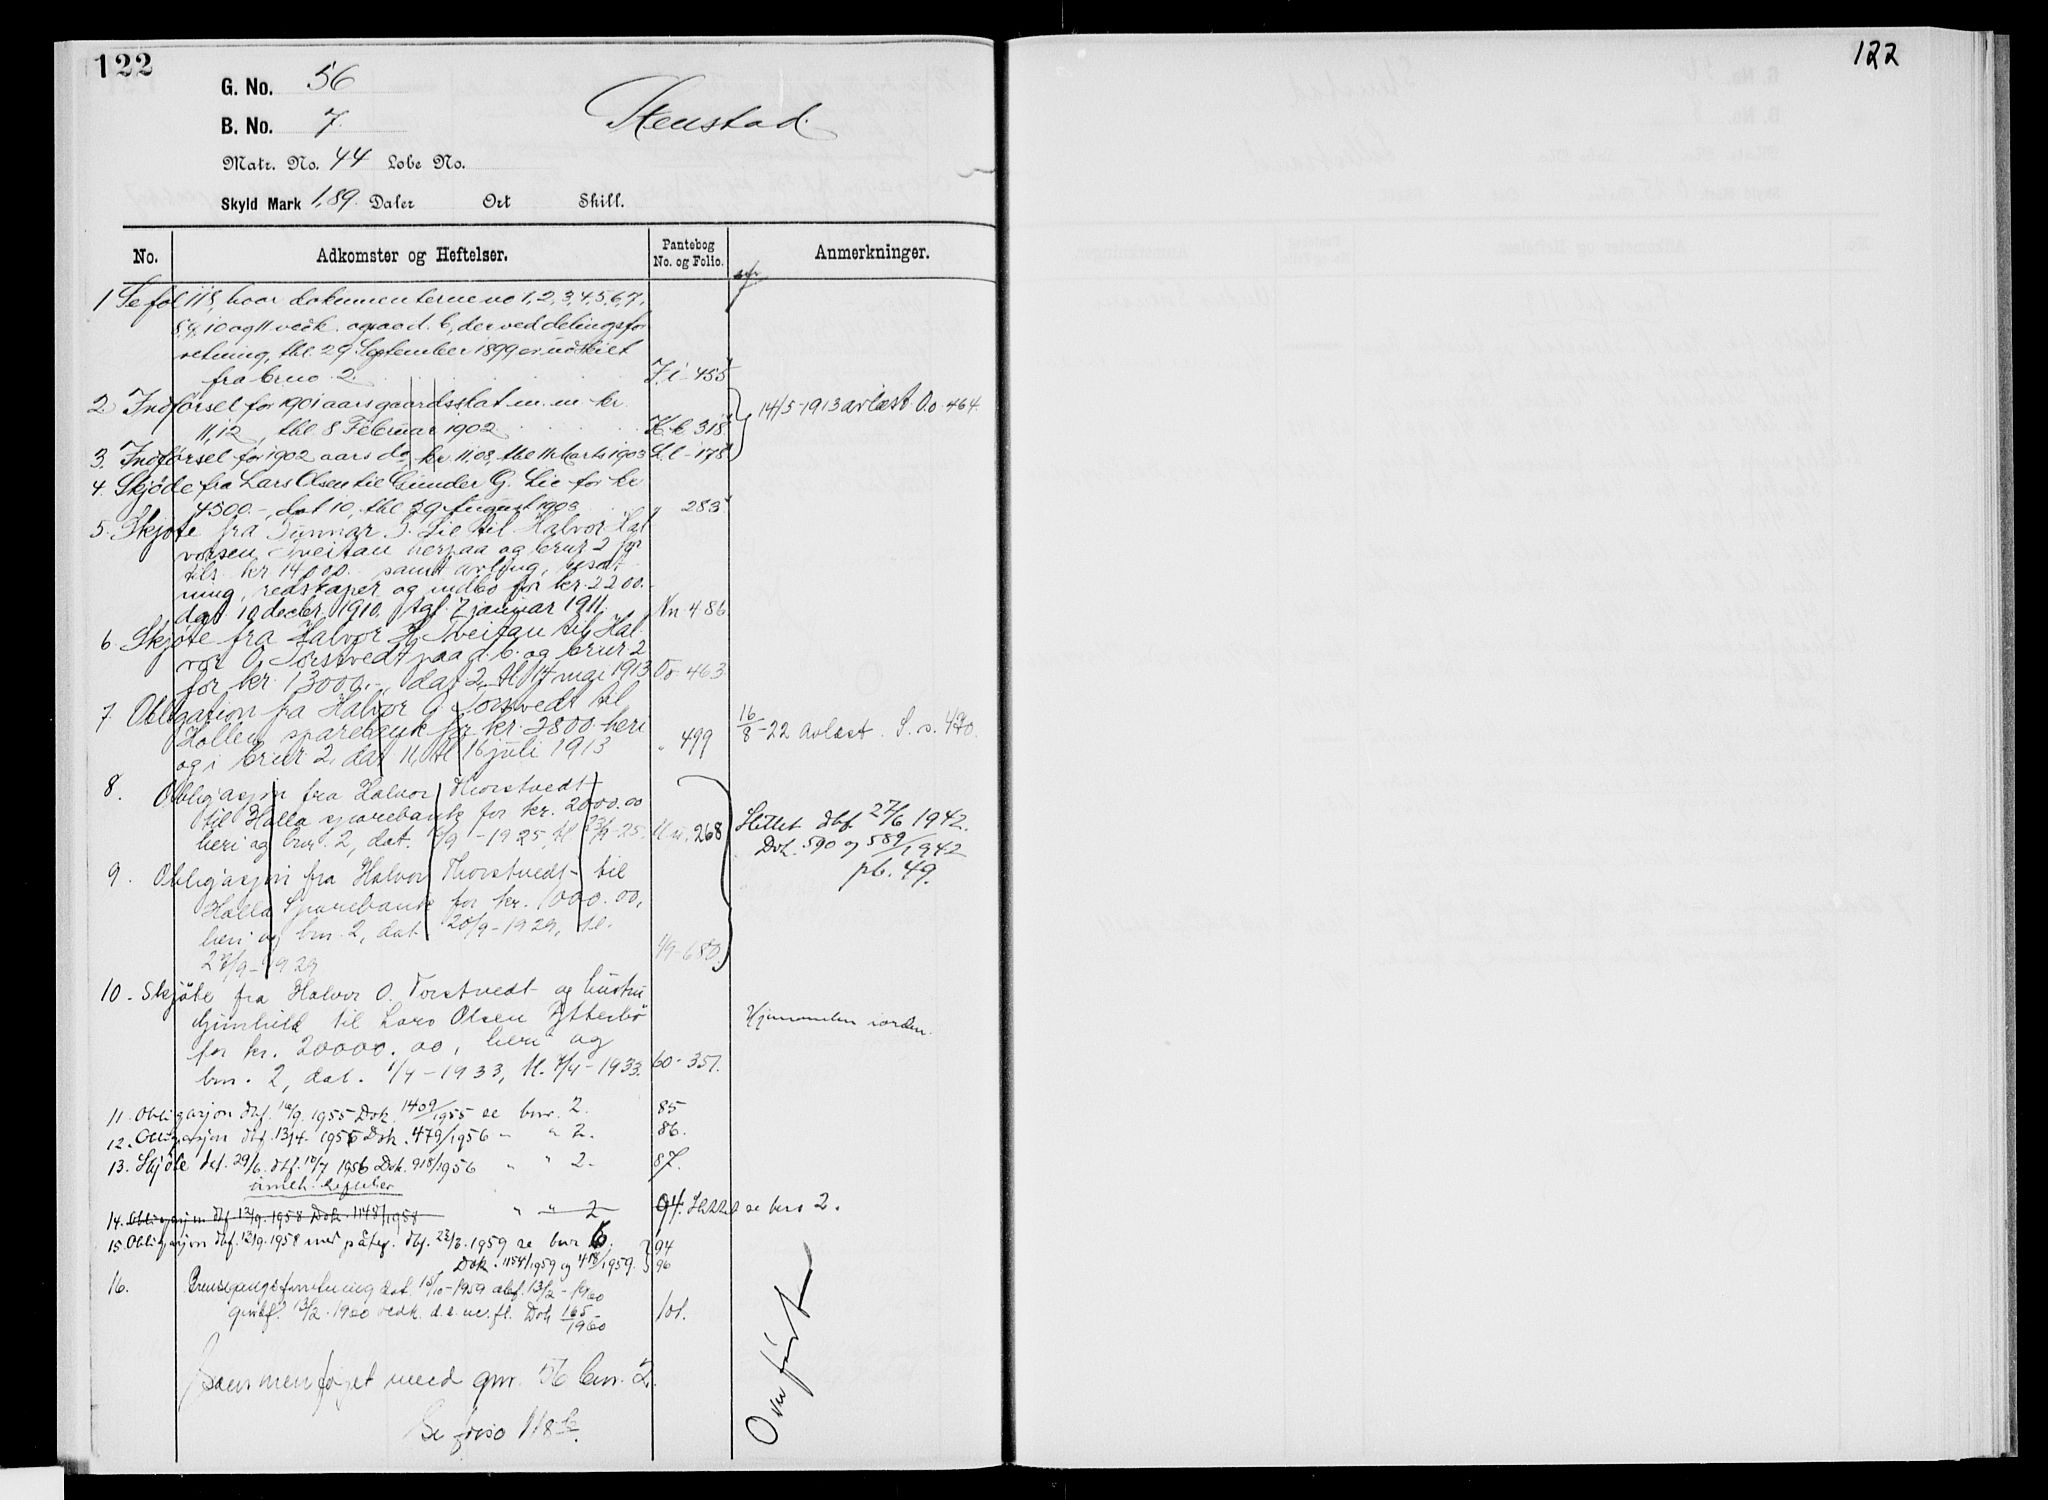 122
G. No. 56
B. No. 7.
Stenstad.
Matr. No. 44 Løbe No.
Skyld Mark 1,89. Daler Ort Skill.
No. Adkomster og Heftelser. Pantebog No. og Folio. Anmerkninger.
1 Se fol 118, hvor dokumenterne no 1, 2, 3, 4, 5, 6, 7,
8, 9, 10 og 11 vedk. ogsaa d. b, der ved delingsfor
retning, thl. 29 September 1899 er udskilt
fra brno 2. J. i 455
2 Indførsel for 1901 aars gaardsskat m. m kr.
11,12, thl. 8 Februar 1902 K. k 318
14/5-1913 avlæst. O.o. 464.
3. Indførsel for 1902 aars do, kr. 11,08, thl 11 Marts 1903 L. l - 178
4. Skjøde fra Lars Olsen til Gunder G. Lie for kr
4500.-, dat 10, thl 29 August 1903 " 283
5. Skjøte fra Gunnar G. Lie til Halvor Hal
vorsen Tveitan herpaa og brnr 2 for
tils. kr 14000.- samt avling, besæt
ning, redskaper og indbo for kr. 2200.-
dat. 10 decbr. 1910. tgl. 7 januar 1911. Nn 486
6. Skjøte fra Halvor H. Tveitan til Hal
vor O. Torstvedt paa d. b. og brnr 2
for kr. 13000.-, dat 2, tl 14 mai 1913 Oo 463.
7. Obligation fra Halvor O. Torstvedt til
Hollen sparebank for kr. 2800. heri
og i brnr 2, dat 11, tl 16 juli 1913 " 499
16/8-22 avlæst. S. s. 490.
8. Obligasjon fra Halvor Thorstvedt
til Holla sparebank for kr. 2000.00
heri og bnr. 2, dat. /9-1925, tl 23/9-25. U u. 268
Slettet dbf. 27/6 1942.
Dok. 590 og 589/1942
pb. 49.
9. Obligasjon fra Halvor Thorstvedt til
Holla Sparebank for kr. 1000.00,
heri og bnr. 2, dat. 20/9-1929, tl.
/9-1929 /9-680.
10. Skjøte fra Halvor O. Torstvedt og hustru
Gunhild til Lars Olsen Ytterbø
for kr. 20000.00, heri og
bnr. 2, dat. 1/4-1933, tl. 7/4-1933. 60-357.
Hjemmelen iorden.
11. Obligasjon dbf. 16/9. 1955 Dok. 1409/1955 se bnr. 2. 85
12. Obligasjon dbf. 13/4- 1956 Dok. 479/1956 " " 2. 86.
13. Skjøte dat. 29/6. dbf. 10/7 1956 Dok. 918/1956 " " 2. 87.
14. Obligasjon dbf. 12/9. 1958 Dok. 1148/1958 " " 2 94. Slettet se bnr 2.
15. Obligasjon dbf. 12/9. 1958 med påteg. dbf. 1959 se bnr 6. 94
Dok. 1959 og 418/1959. 96
16. Grensegangsforretning dat. 15/10-1959 13/2-1960
13/2-1960 vedk. d. e. m. fl. Dok 165/1960 101.
Sammenføjet med gnr. 56 bnr. 2.
Se folio 118 b.
Overført
122